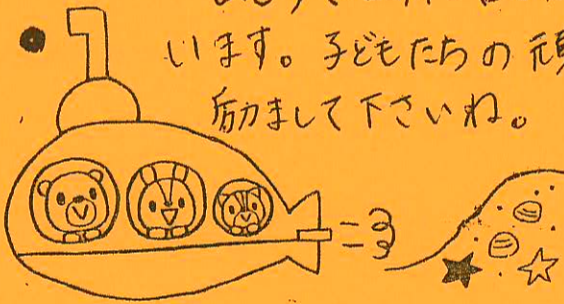 います。子どもたちの頑
励まして下さいね。